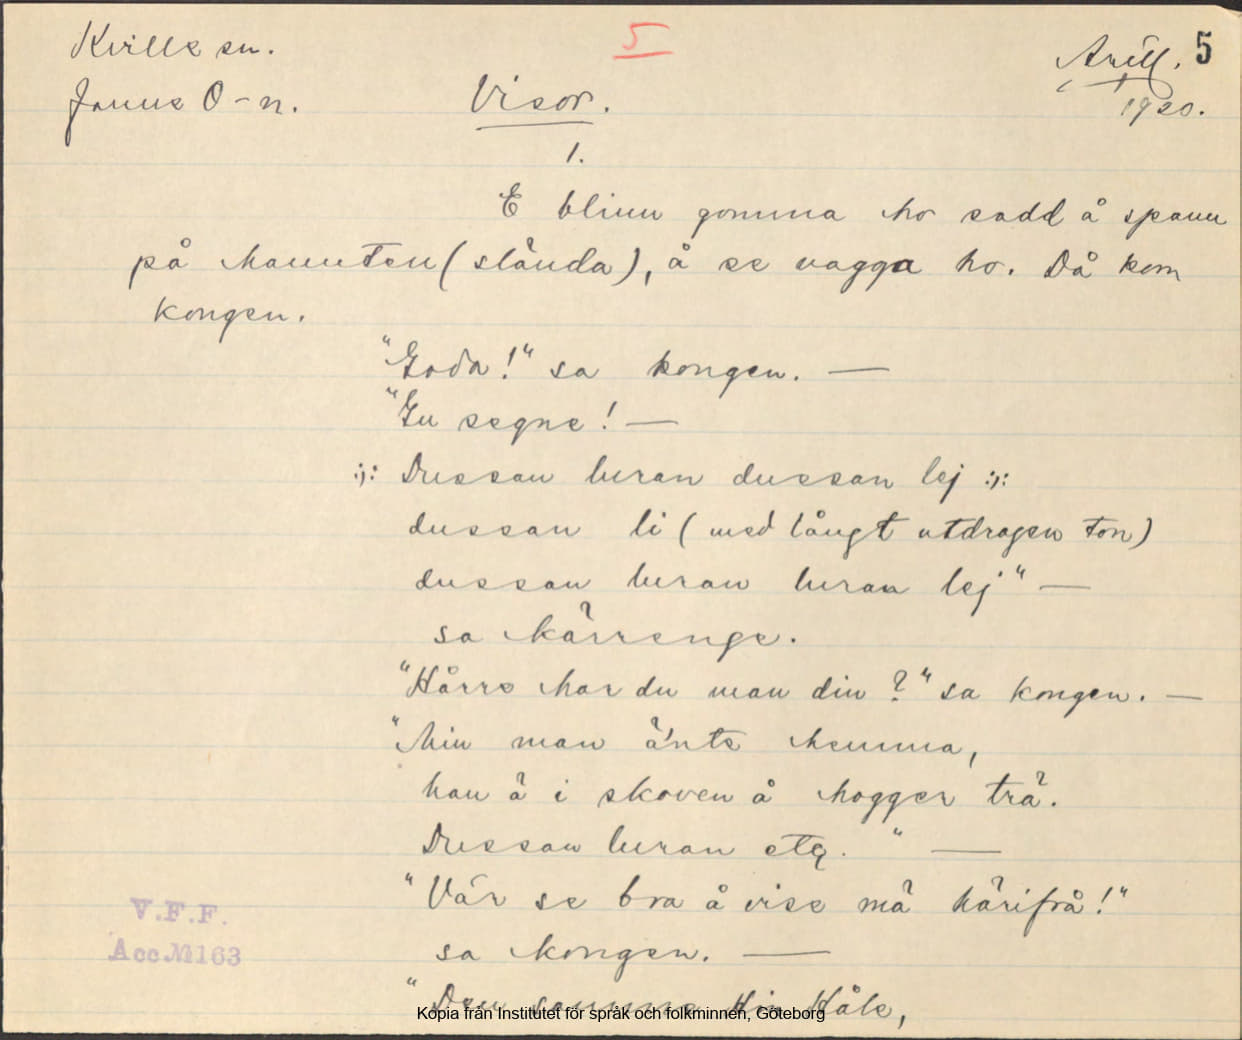 Kville sn. 5 Arill. 5
Janne O-n. Visor. 1920.
1.
E blinn gomma ho sadd å spann
på hannten (slända), å se vagga ho. Då kom
kongen.
"Goda!" sa kongen. —
"Gu segne! —
:,: Dussan luran dussan lej :,:
dussan li (med långt utdragen ton)
dussan luran luran lej" —
sa kärrenge.
"Hårre har du man din?" sa kongen. —
"Min man änte hemma,
han ä i skoven å hogger trä.
Dussan luran etc. " —
"Vär se bra å vise mä härifrå!"
sa kongen. —
"Den samme Hin Håle,
V.F.F.
Acc.№163
Kopia från Institutet för språk och folkminnen, Göteborg